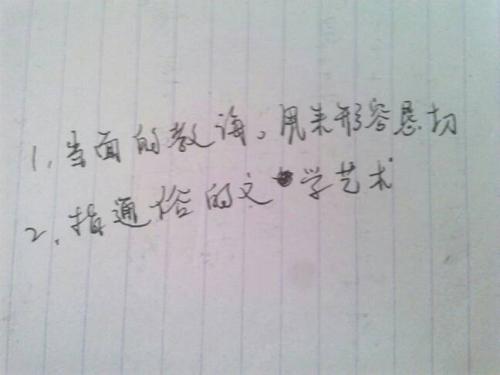 1、当面的教诲。用来形容恳切
2、指通俗的文学艺术